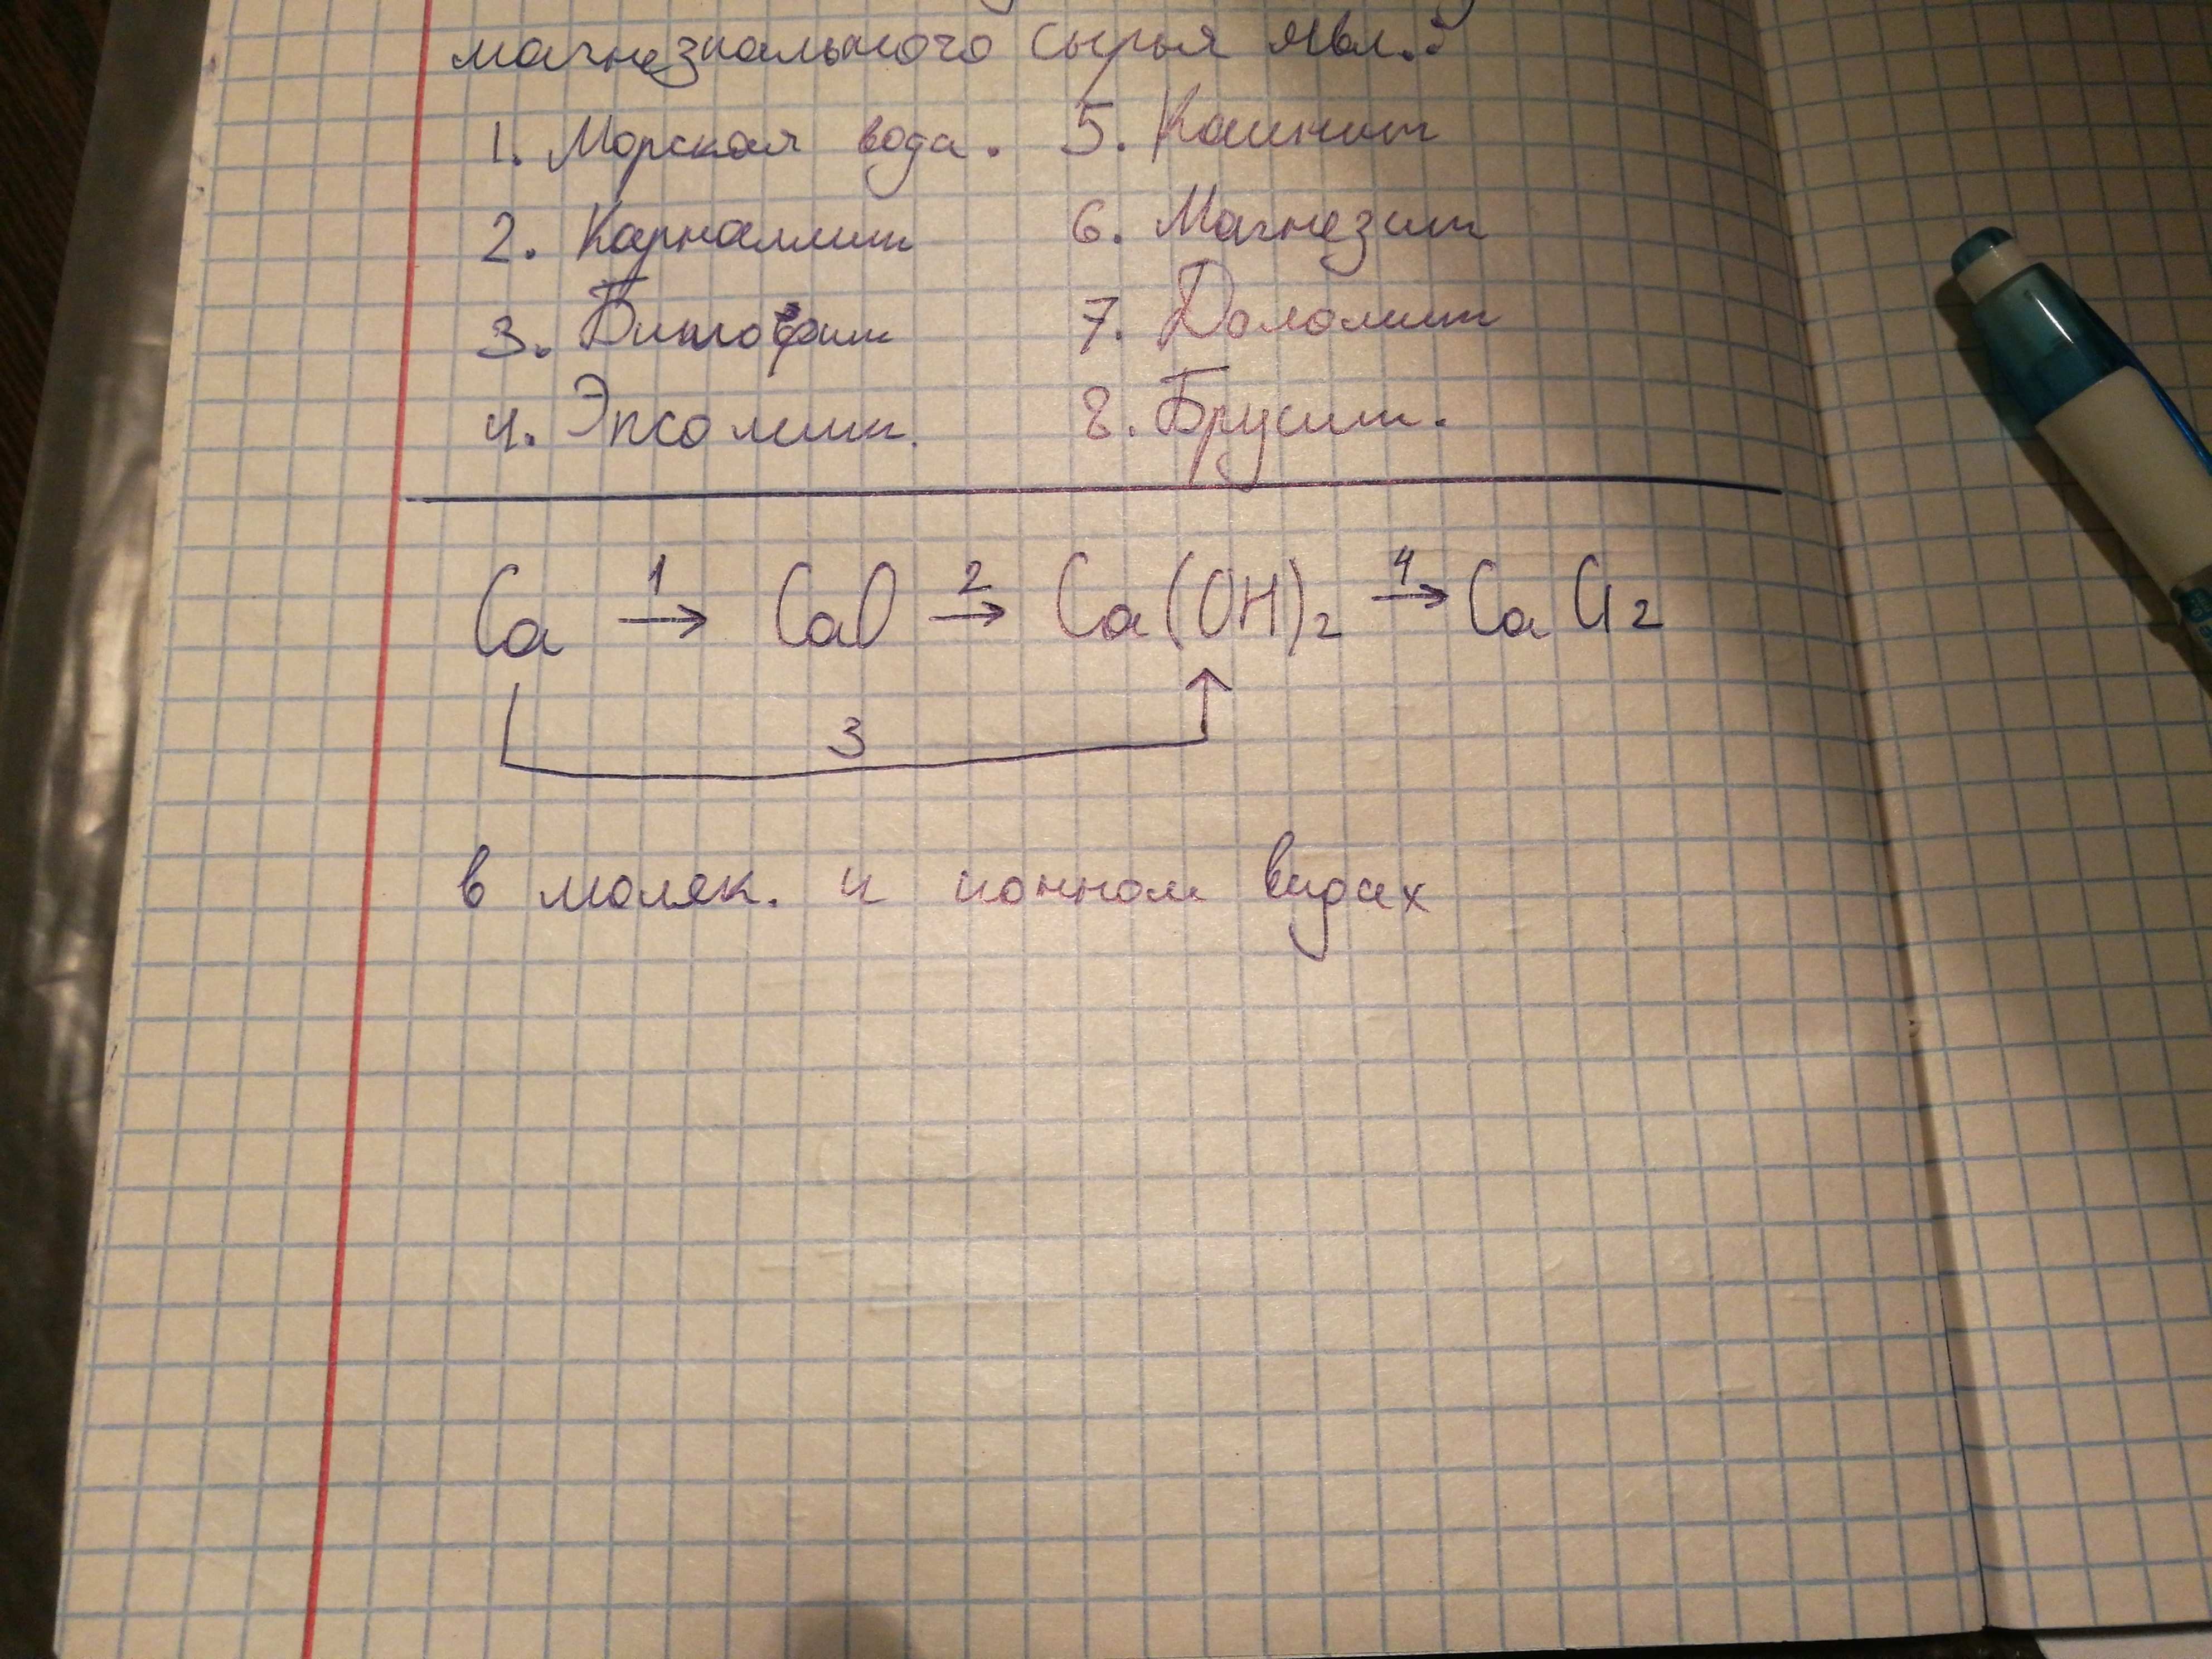 магнезиального сырья явл.:
1. Морская вода. 5. Каинит
2. Карналлит 6. Магнезит
3. Бишофит 7. Доломит
4. Эпсомит. 8. Брусит.
Ca 1→ CaO 2→ Ca(OH)2 4→ CaCl2
3
в молек. и ионном видах